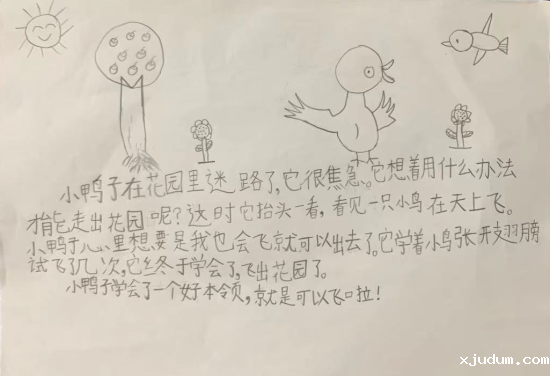 小鸭子在花园里迷路了,它很焦急。它想着用什么办法
才能走出花园呢?这时它抬头一看,看见一只小鸟在天上飞。
小鸭子心里想要是我也会飞就可以出去了。它学着小鸟张开翅膀
试飞了几次,它终于学会了,飞出花园了。
小鸭子学会了一个好本领,就是可以飞啦!
xjudum.com